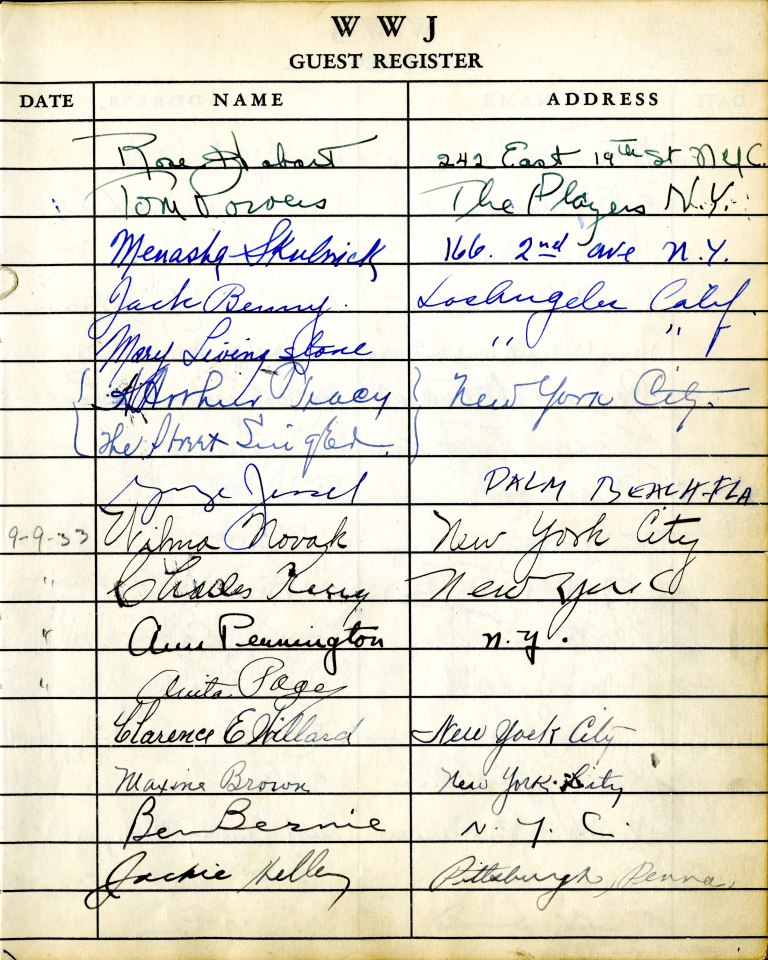 W W J
GUEST REGISTER
DATE NAME ADDRESS
Rose Hobart 242 East 19th St N.Y.C.
Tom Powers The Players N.Y.
Menasha Skulnick 166. 2nd ave N.Y.
Jack Benny. Los Angeles Calif
Mary Livingstone " "
{ Arthur Tracy } New York City.
{ The Street Singer. }
George Jessel PALM BEACH-FLA
9-9-33 Wilma Novak New York City
" Charles New York
" Ann Pennington n.y.
" Anita Page
Clarence E Willard New York City
Maxine Brown New York City
Ben Bernie N. Y. C.
Jackie Kelley Pittsburgh, Penna.